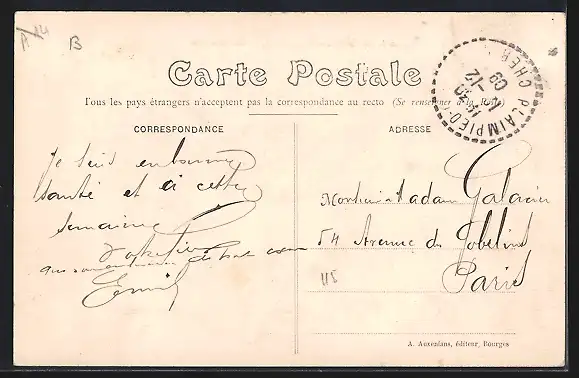 B
Carte Postale
Tous les pays étrangers n'acceptent pas la correspondance au recto (Se renseigner à la Poste)
PLAIMPIED
CHER
17-12
09
CORRESPONDANCE
ADRESSE
Je suis en bonne
santé et à cette
semaine
Emile
Monsieur Madam
54 Avenue des Gobelins
Paris
118
A. Auxenfans, éditeur, Bourges